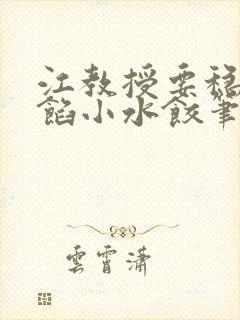 江教授要穩
餡小水餃筆
雲霄瀟